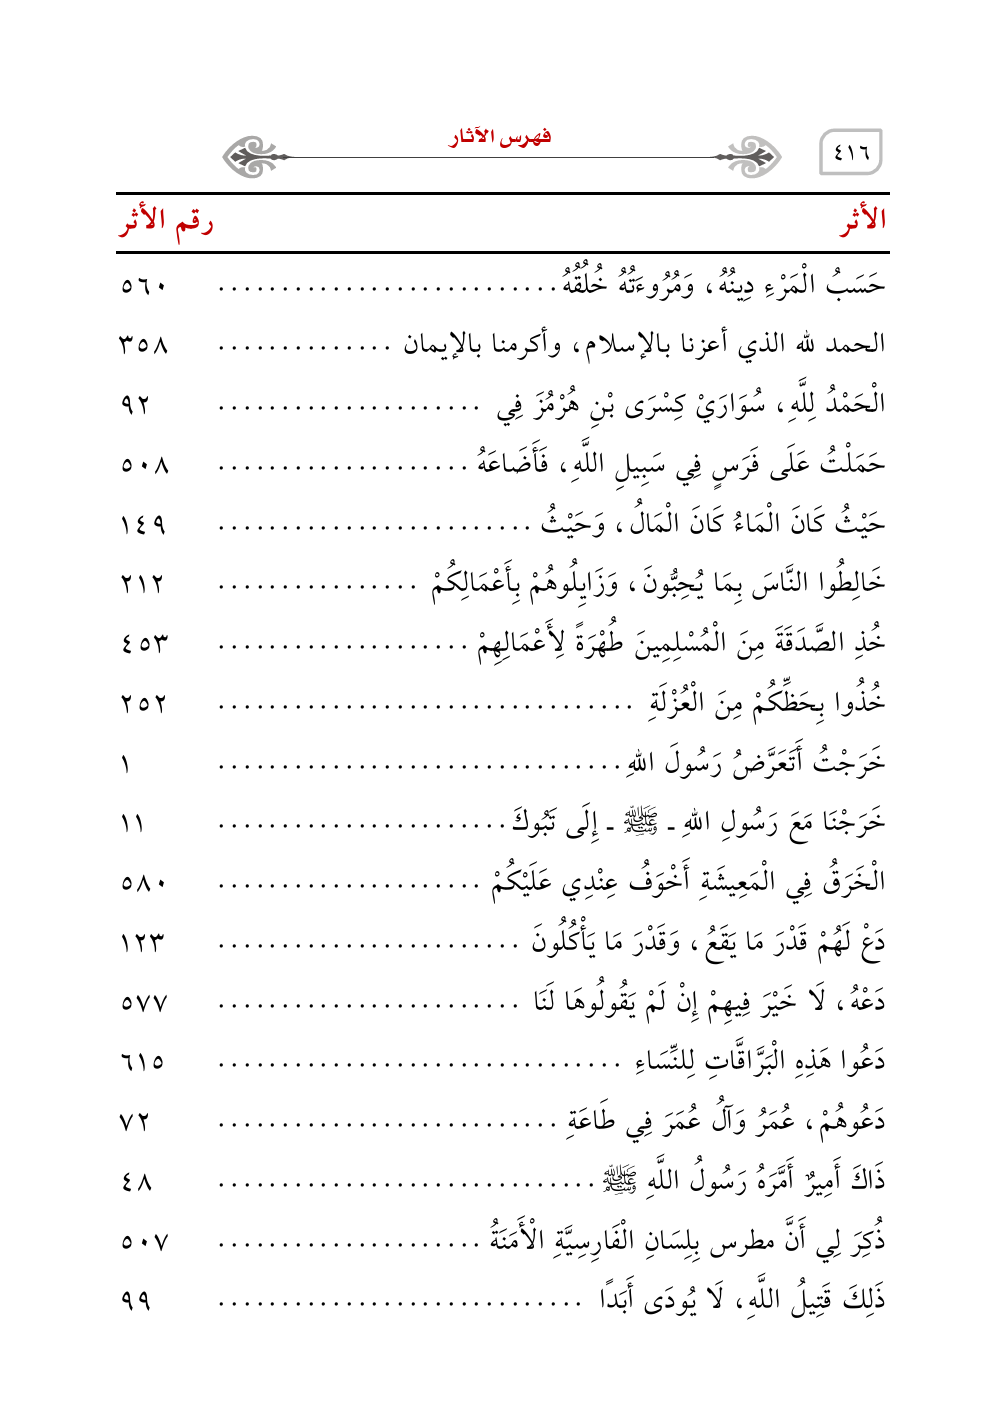 ٤١٦
فهرس الآثار
الأثر رقم الأثر
حَسَبُ الْمَرْءِ دِينُهُ، وَمُرُوءَتُهُ خُلُقُهُ........................... ٥٦٠
الحمد لله الذي أعزنا بالإسلام، وأكرمنا بالإيمان .............. ٣٥٨
الْحَمْدُ لِلَّهِ، سُوَارَيْ كِسْرَى بْنِ هُرْمُزَ فِي ..................... ٩٢
حَمَلْتُ عَلَى فَرَسٍ فِي سَبِيلِ اللَّهِ، فَأَضَاعَهُ .................... ٥٠٨
حَيْثُ كَانَ الْمَاءُ كَانَ الْمَالُ، وَحَيْثُ ......................... ١٤٩
خَالِطُوا النَّاسَ بِمَا يُحِبُّونَ، وَزَايِلُوهُمْ بِأَعْمَالِكُمْ ................ ٢١٢
خُذِ الصَّدَقَةَ مِنَ الْمُسْلِمِينَ طُهْرَةً لِأَعْمَالِهِمْ .................... ٤٥٣
خُذُوا بِحَظِّكُمْ مِنَ الْعُزْلَةِ ................................. ٢٥٢
خَرَجْتُ أَتَعَرَّضُ رَسُولَ اللهِ................................ ١
خَرَجْنَا مَعَ رَسُولِ اللهِ ـ ﷺ ـ إِلَى تَبُوكَ ....................... ١١
الْخَرَقُ فِي الْمَعِيشَةِ أَخْوَفُ عِنْدِي عَلَيْكُمْ ..................... ٥٨٠
دَعْ لَهُمْ قَدْرَ مَا يَقَعُ، وَقَدْرَ مَا يَأْكُلُونَ ........................ ١٢٣
دَعْهُ، لَا خَيْرَ فِيهِمْ إِنْ لَمْ يَقُولُوهَا لَنَا ........................ ٥٧٧
دَعُوا هَذِهِ الْبَرَّاقَّاتِ لِلنِّسَاءِ ................................ ٦١٥
دَعُوهُمْ، عُمَرُ وَآلُ عُمَرَ فِي طَاعَةِ ........................... ٧٢
ذَاكَ أَمِيرٌ أَمَّرَهُ رَسُولُ اللَّهِ ﷺ .............................. ٤٨
ذُكِرَ لِي أَنَّ مطرس بِلِسَانِ الْفَارِسِيَّةِ الْأَمَنَةُ ..................... ٥٠٧
ذَلِكَ قَتِيلُ اللَّهِ، لَا يُودَى أَبَداً ............................. ٩٩